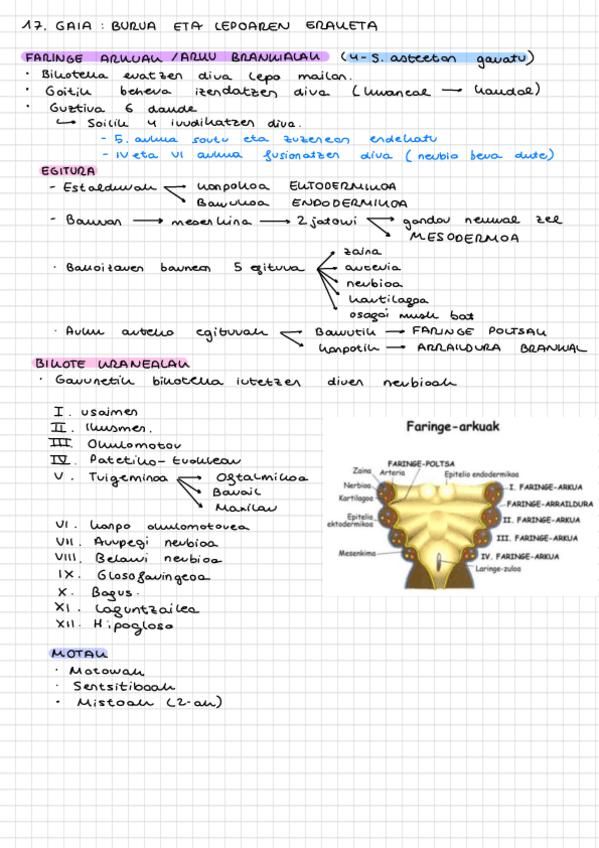 17. GAIA : BURUA ETA LEPOAREN ERAKETA
FARINGE ARKUAK / ARKU BRANKIALAK (4-5. asteetan garatu)
· Bikoteka eratzen dira lepo mailan.
· Goitik behera izendatzen dira (kraneal → kaudal)
· Guztira 6 daude
↳ Soilik 4 irudikatzen dira.
- 5. arkua sortu eta zuzenean endekatu
- IV eta VI arkua fusionatzen dira (nerbio bera dute)
EGITURA
- Estaldurak
kanpokoa EKTODERMIKOA
Barrukoa ENDODERMIKOA
- Barruan → mesenkima → 2 jatorri
gandor neural zel
MESODERMOA
· Bakoitzaren barnean 5 egitura
zaina
arteria
nerbioa
kartilagoa
osagai musk bat
· Arku arteko egiturak
Barrutik → FARINGE POLTSAK
kanpotik → ARRAILDURA BRANKIAL
BIKOTE KRANEALAK
· Garunetik bikoteka irtetzen diren nerbioak
I. usaimen
II. Ikusmen.
III. Okulomotor
IV. Patetiko - troklear
V. Trigeminoa
Oftalmikoa
Barail
Maxilar
VI. kanpo okulomotorea
VII. Aurpegi nerbioa
VIII. Belarri nerbioa
IX. Glosofaringeoa
X. Bagus.
XI. Laguntzailea
XII. Hipogloso
Faringe-arkuak
FARINGE-POLTSA
Zaina Arteria Epitelio endodermikoa
Nerbioa
Kartilagoa
Epitelio ektodermikoa
Mesenkima
I. FARINGE-ARKUA
FARINGE-ARRAILDURA
II. FARINGE-ARKUA
III. FARINGE-ARKUA
IV. FARINGE-ARKUA
Laringe-zuloa
MOTAK
· Motorrak
· Sentsitiboak
· Mistoak (2-ak)